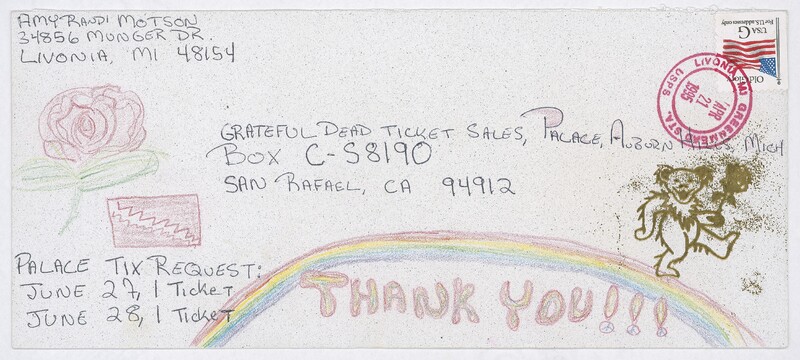 AMY-RANDI MOTSON
34856 MUNGER DR.
LIVONIA, MI 48154
Old Glory
USA G
For U.S. addresses only
LIVONIA MI
USPS
APR 21 1995
GRATEFUL DEAD TICKET SALES, PALACE, AUBURN HILLS, MICH
BOX C-S8190
SAN RAFAEL, CA 94912
PALACE TIX REQUEST:
JUNE 27, 1 TICKET
JUNE 28, 1 TICKET
THANK YOU!!!